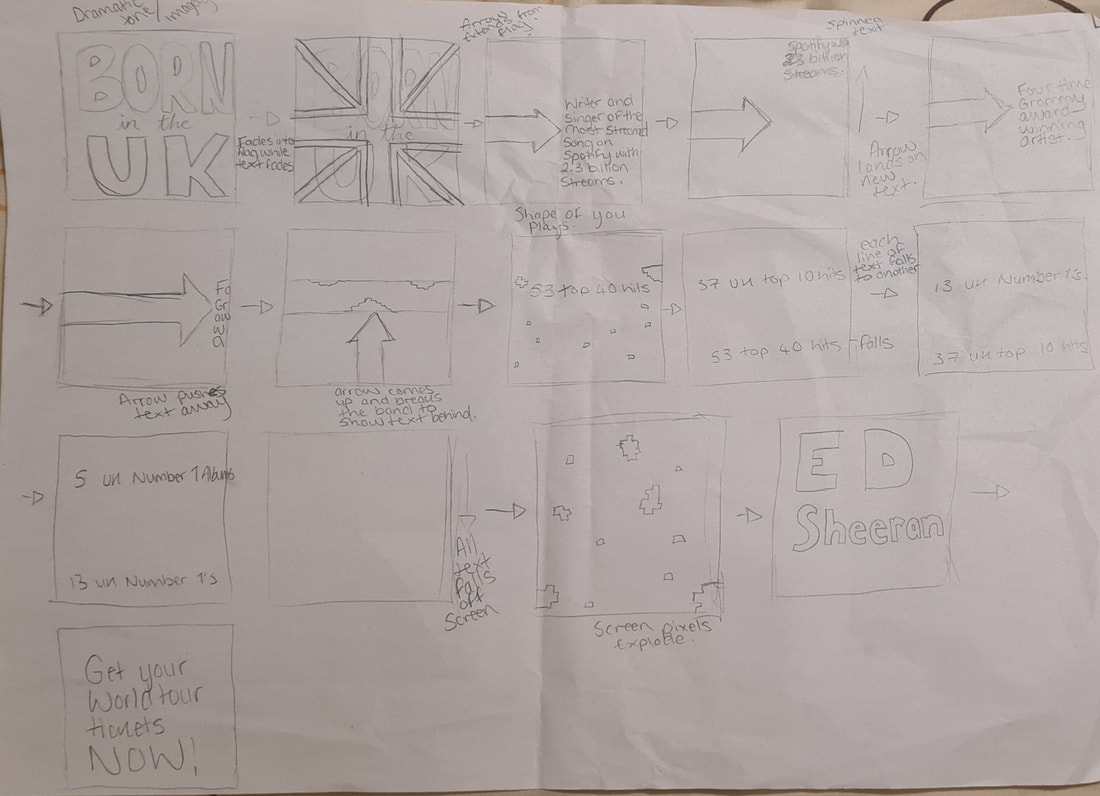 Dramatic
BORN
in the
UK
Fades into
flag while
text fades
BORN
in the
UK
Arrow
extends from
flag.
Writer and
Singer of the
most streamed
Song on
Spotify with
2.3 billion
Streams.
Spotify with
2.3 billion
Streams.
spinner
text
Arrow
lands on
new
text.
Four time
Grammy
award
winning
artist.
Fo
Gr
aw
W
a
Arrow pushes
text away
arrow comes
up and breaks
the band to
show text behind.
Shape of you
plays.
53 top 40 hits
37 UK top 10 hits
53 top 40 hits
falls
each
line of
text falls
to another
13 UK Number 1's.
37 UK top 10 hits
5 UK Number 1 Albums
13 UK Number 1's
All
text
falls
off
Screen
Screen pixels
explode.
ED
Sheeran
Get your
World tour
tickets
NOW!